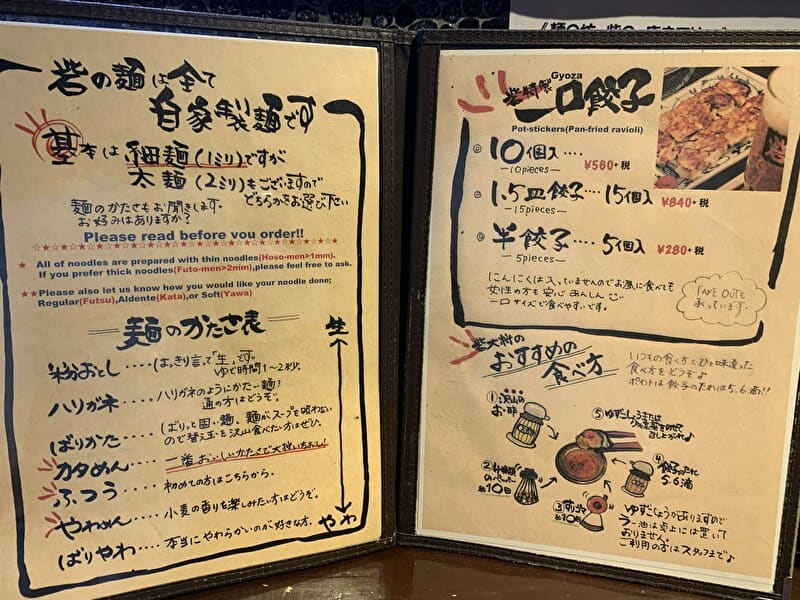 砦の麺は全て
自家製麺です
基本は細麺(1ミリ)ですが
太麺(2ミリ)もございますので
どちらかをお選び下い
麺のかたさもお聞きします。
お好みはありますか?
Please read before you order!!
★ All of noodles are prepared with thin noodles(Hoso-men>1mm).
If you prefer thick noodles(Futo-men>2mm),please feel free to ask.
★★Please also let us know how you would like your noodle done;
Regular(Futsu),Aldente(Kata),or Soft(Yawa)
麺のかたさ表
生
粉おとし・・・・はっきり言って「生」です。
ゆで時間1〜2秒。
ハリガネ・・・・ハリガネのようにかたー麺!
通の方はどうぞ。
ばりかた・・・・ばりっと固い麺、麺がスープを吸わない
ので替え玉を沢山食べたい方はぜひ。
カタめん・・・・一番おいしいかたさで大将いちおし!
ふつう・・・・初めての方はこちらから。
やわめん・・・・小麦の香りを楽しみたい方はどうぞ。
ばりやわ・・・・本当にやわらかいのが好きな方。
やわ
Gyoza
砦特製 一口餃子
Pot-stickers(Pan-fried ravioli)
10個入・・・・ ¥560+税
—10pieces—
1.5皿餃子・・・15個入 ¥840+税
—15pieces—
半餃子・・・・5個入 ¥280+税
—5pieces—
にんにくは入っていませんのでお昼に食べても
女性の方も安心あんしん
一口サイズで食べやすいです。
TAKE OUTも
承っています。
砦大将の
おすすめの
食べ方
いつもの食べ方とひと味違った
食べ方をどうぞ♪
ポイントは餃子のたれは5.6滴!!
①沢山の
お酢
②
のペッパー
約10回
③すりゴマ
約10回
④餃子のたれ
5.6滴
⑤ゆずこしょうまたは
召し上がれ♪
ゆずこしょうがありますので
ラー油は卓上には置いて
おりません。
ご利用の方はスタッフまで♪